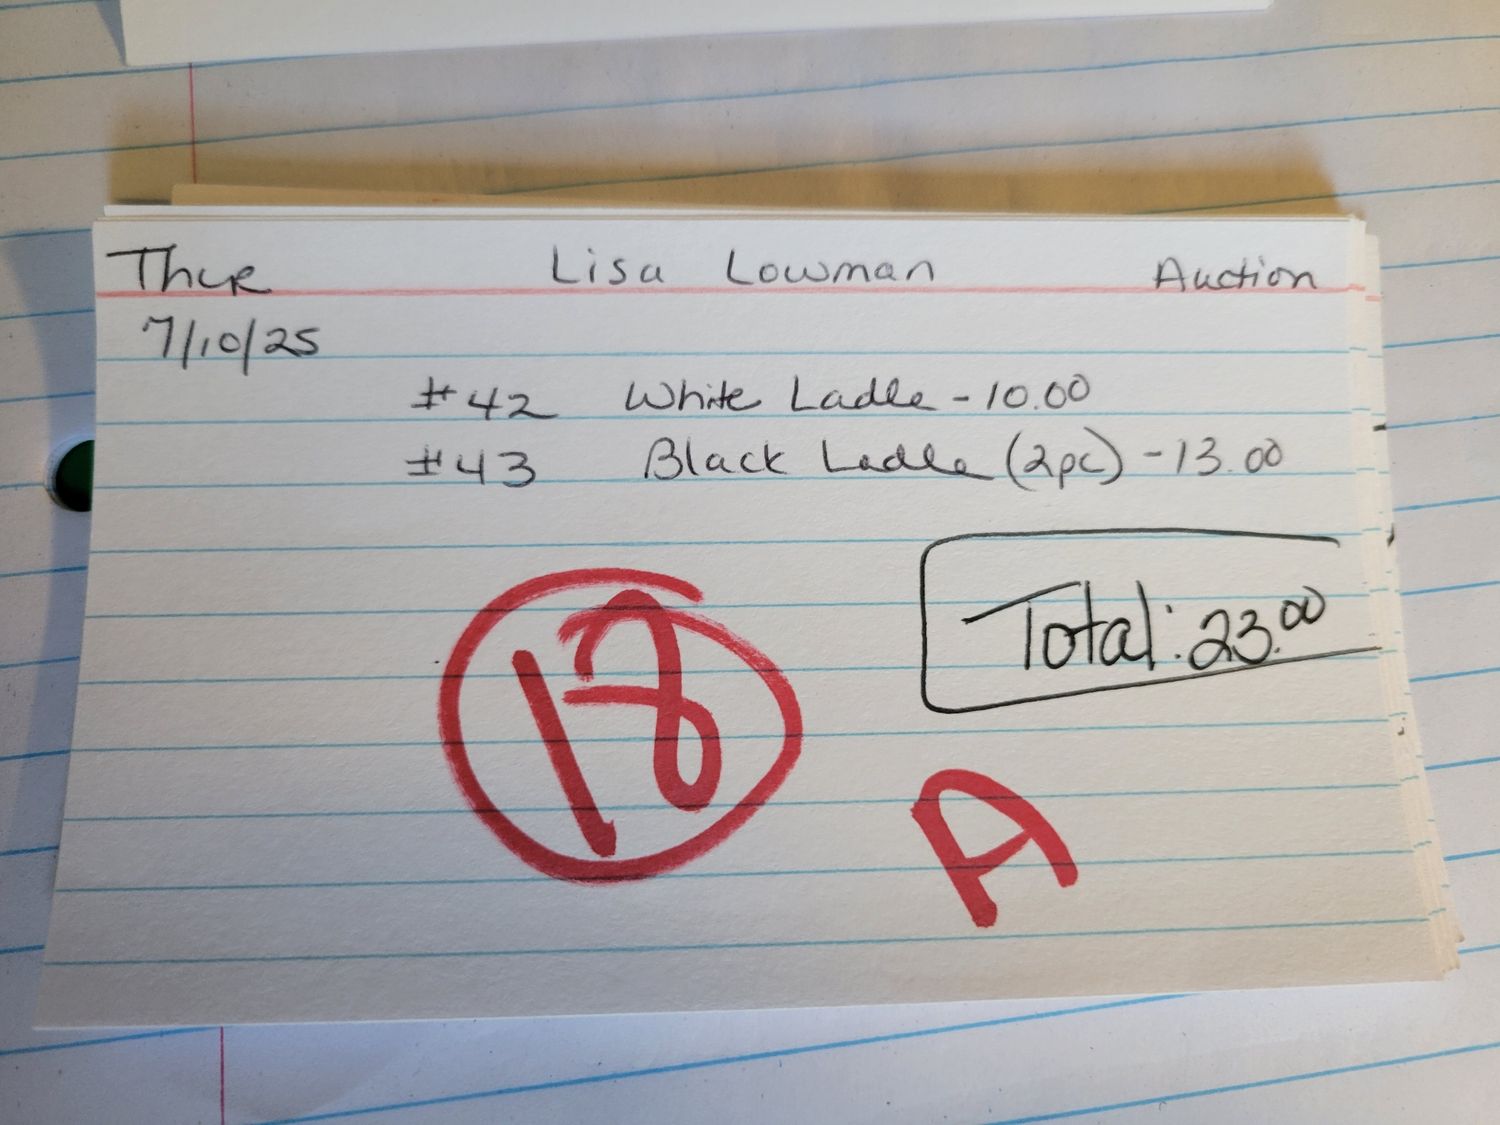 Thur Lisa Lowman Auction
7/10/25
#42 White Ladle - 10.00
#43 Black Ladle (2pc) - 13.00
Total: 23.00
18
A